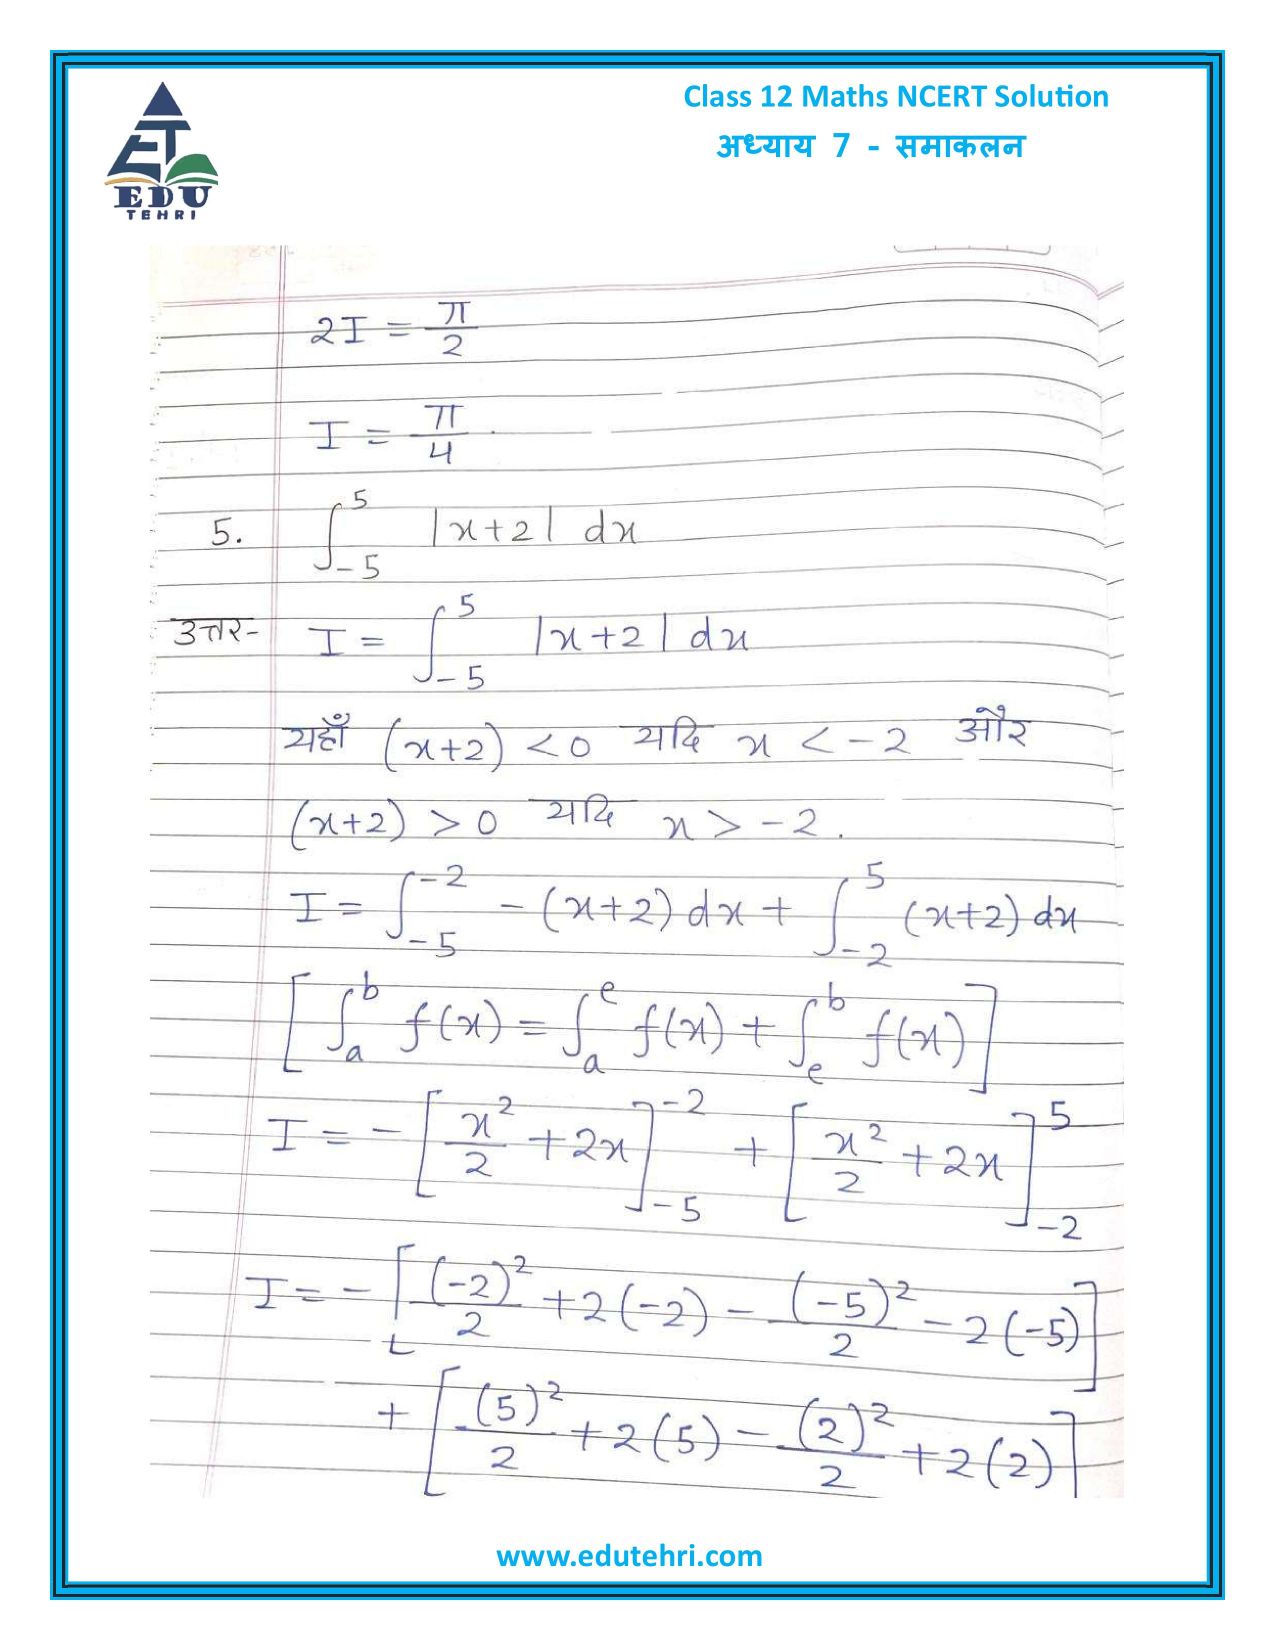 Class 12 Maths NCERT Solution
अध्याय 7 - समाकलन
EDU
TEHRI
2I = π/2
I = π/4
5. ∫_{-5}^{5} |x+2| dx
उत्तर- I = ∫_{-5}^{5} |x+2| dx
यहाँ (x+2) < 0 यदि x < -2 और
(x+2) > 0 यदि x > -2.
I = ∫_{-5}^{-2} -(x+2) dx + ∫_{-2}^{5} (x+2) dx
[∫_{a}^{b} f(x) = ∫_{a}^{e} f(x) + ∫_{e}^{b} f(x)]
I = -[x²/2 + 2x]_{-5}^{-2} + [x²/2 + 2x]_{-2}^{5}
I = -[(-2)²/2 + 2(-2) - (-5)²/2 - 2(-5)]
+ [(5)²/2 + 2(5) - (2)²/2 + 2(2)]
www.edutehri.com